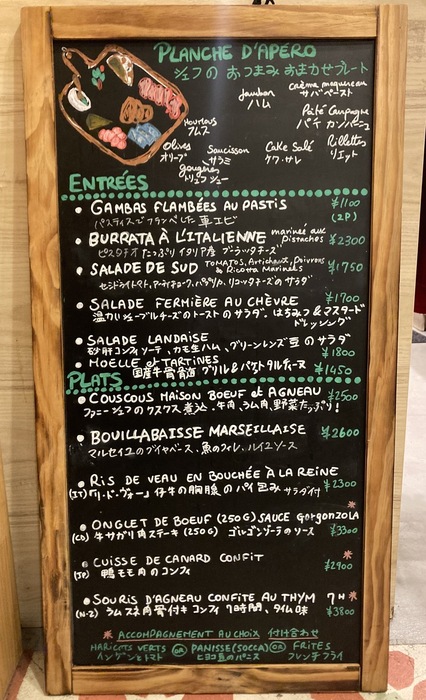 PLANCHE D'APÉRO
シェフの おつまみ おまかせプレート
Jambon
ハム
crème maquereau
サバペースト
Houmous
フムス
Pâté Campagne
パテ カンパーニュ
Olives
オリーブ
Saucisson
サラミ
Cake Salé
ケク・サレ
Rillettes
リエット
gougères
シュー
ENTRÉES
GAMBAS FLAMBÉES AU PASTIS ¥1100
パスティスでフランベした 車エビ (2P)
BURRATA À L'ITALIENNE marinée aux pistaches ¥2300
ピスタチオ たっぷり イタリア産 ブラッタチーズ
SALADE DE SUD TOMATOS, Artichaux, Poivrons & Ricotta Marinés ¥1750
セミドライトマト、アーティチョーク、パプリカ、リコッタチーズの サラダ
SALADE FERMIÈRE AU CHÈVRE ¥1700
温かいシェーブルチーズのトーストの サラダ、はちみつ&マスタード
ドレッシング
SALADE LANDAISE
砂肝コンフィソテー、カモ生ハム、グリーンレンズ豆 の サラダ
¥1800
MOELLE et TARTINES
国産牛骨髄 グリル & バゲット タルティーヌ ¥1450
PLATS
COUSCOUS MAISON BOEUF et AGNEAU ¥2500
ファニーシェフの クスクス 煮込、牛肉、ラム肉、野菜たっぷり!
BOUILLABAISSE MARSEILLAISE ¥2600
マルセイユのブイヤベース、魚のフィレ、ルイユソース
RIS DE VEAU EN BOUCHÉE À LA REINE
(IT) 「リ・ド・ヴォー」仔牛の胸腺 の パイ包み サラダ付 ¥2300
ONGLET DE BOEUF (250G) SAUCE GORGONZOLA
(CD) 牛サガリ肉 ステーキ (250G) ゴルゴンゾーラ の ソース ¥3300
CUISSE DE CANARD CONFIT
(JP) 鴨モモ肉の コンフィ ¥2900
SOURIS D'AGNEAU CONFITE AU THYM 7H
(N-Z) ラムスネ肉 骨付き コンフィ 7時間、タイム味 ¥3800
* ACCOMPAGNEMENT AU CHOIX 付け合わせ
HARICOTS VERTS OR PANISSE (SOCCA) OR FRITES
インゲンとトマト ヒヨコ豆のパニス フレンチフライ